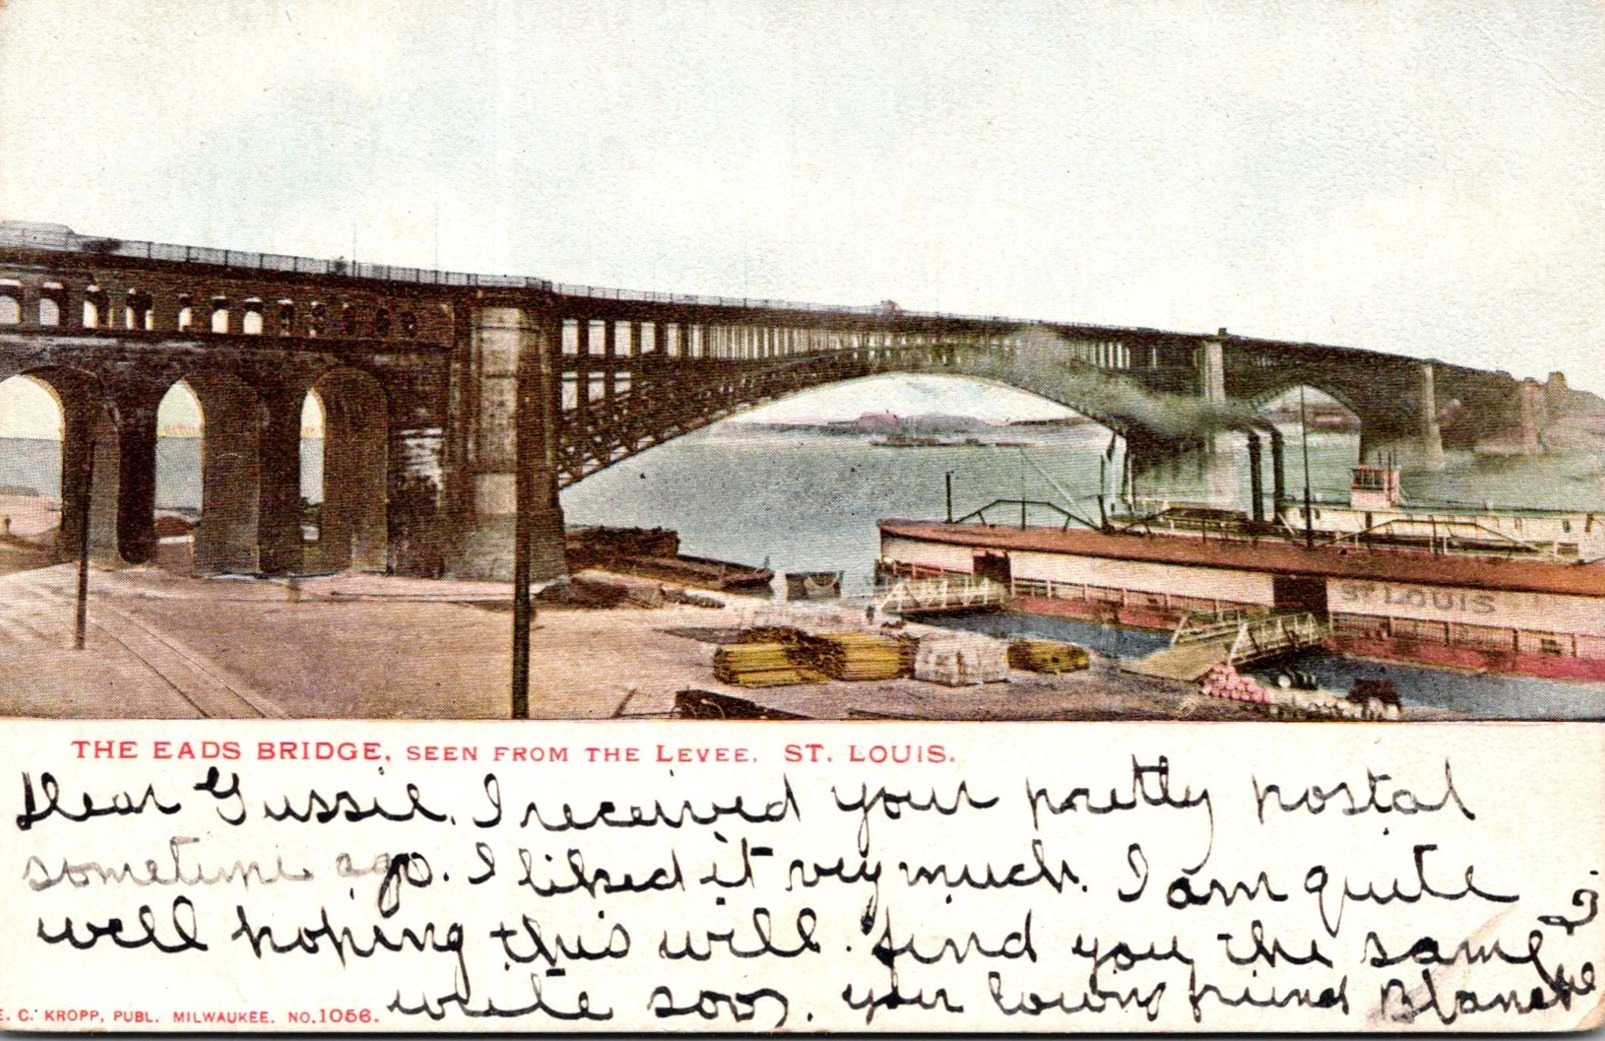 St LOUIS
THE EADS BRIDGE, SEEN FROM THE LEVEE. ST. LOUIS.
Dear Gussie. I received your pretty postal
sometime ago. I liked it very much. I am quite
well hoping this will find you the same
write soon. your loving friend Blanche
E. C. KROPP, PUBL. MILWAUKEE. NO. 1056.